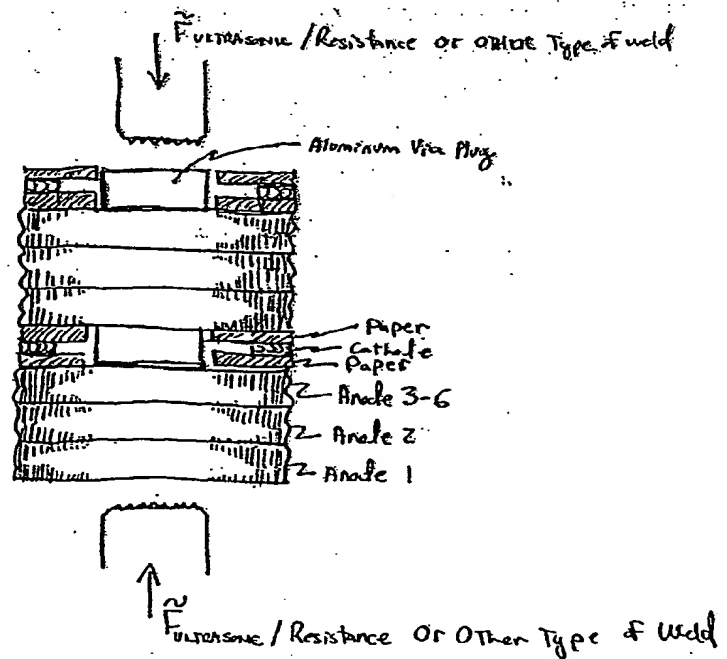 F̃ULTRASONIC / Resistance Or OTHER Type of weld
Aluminum Via Plug
Paper
Cathode
Paper
Anode 3-6
Anode 2
Anode 1
F̃ULTRASONIC / Resistance Or OTher Type of Weld